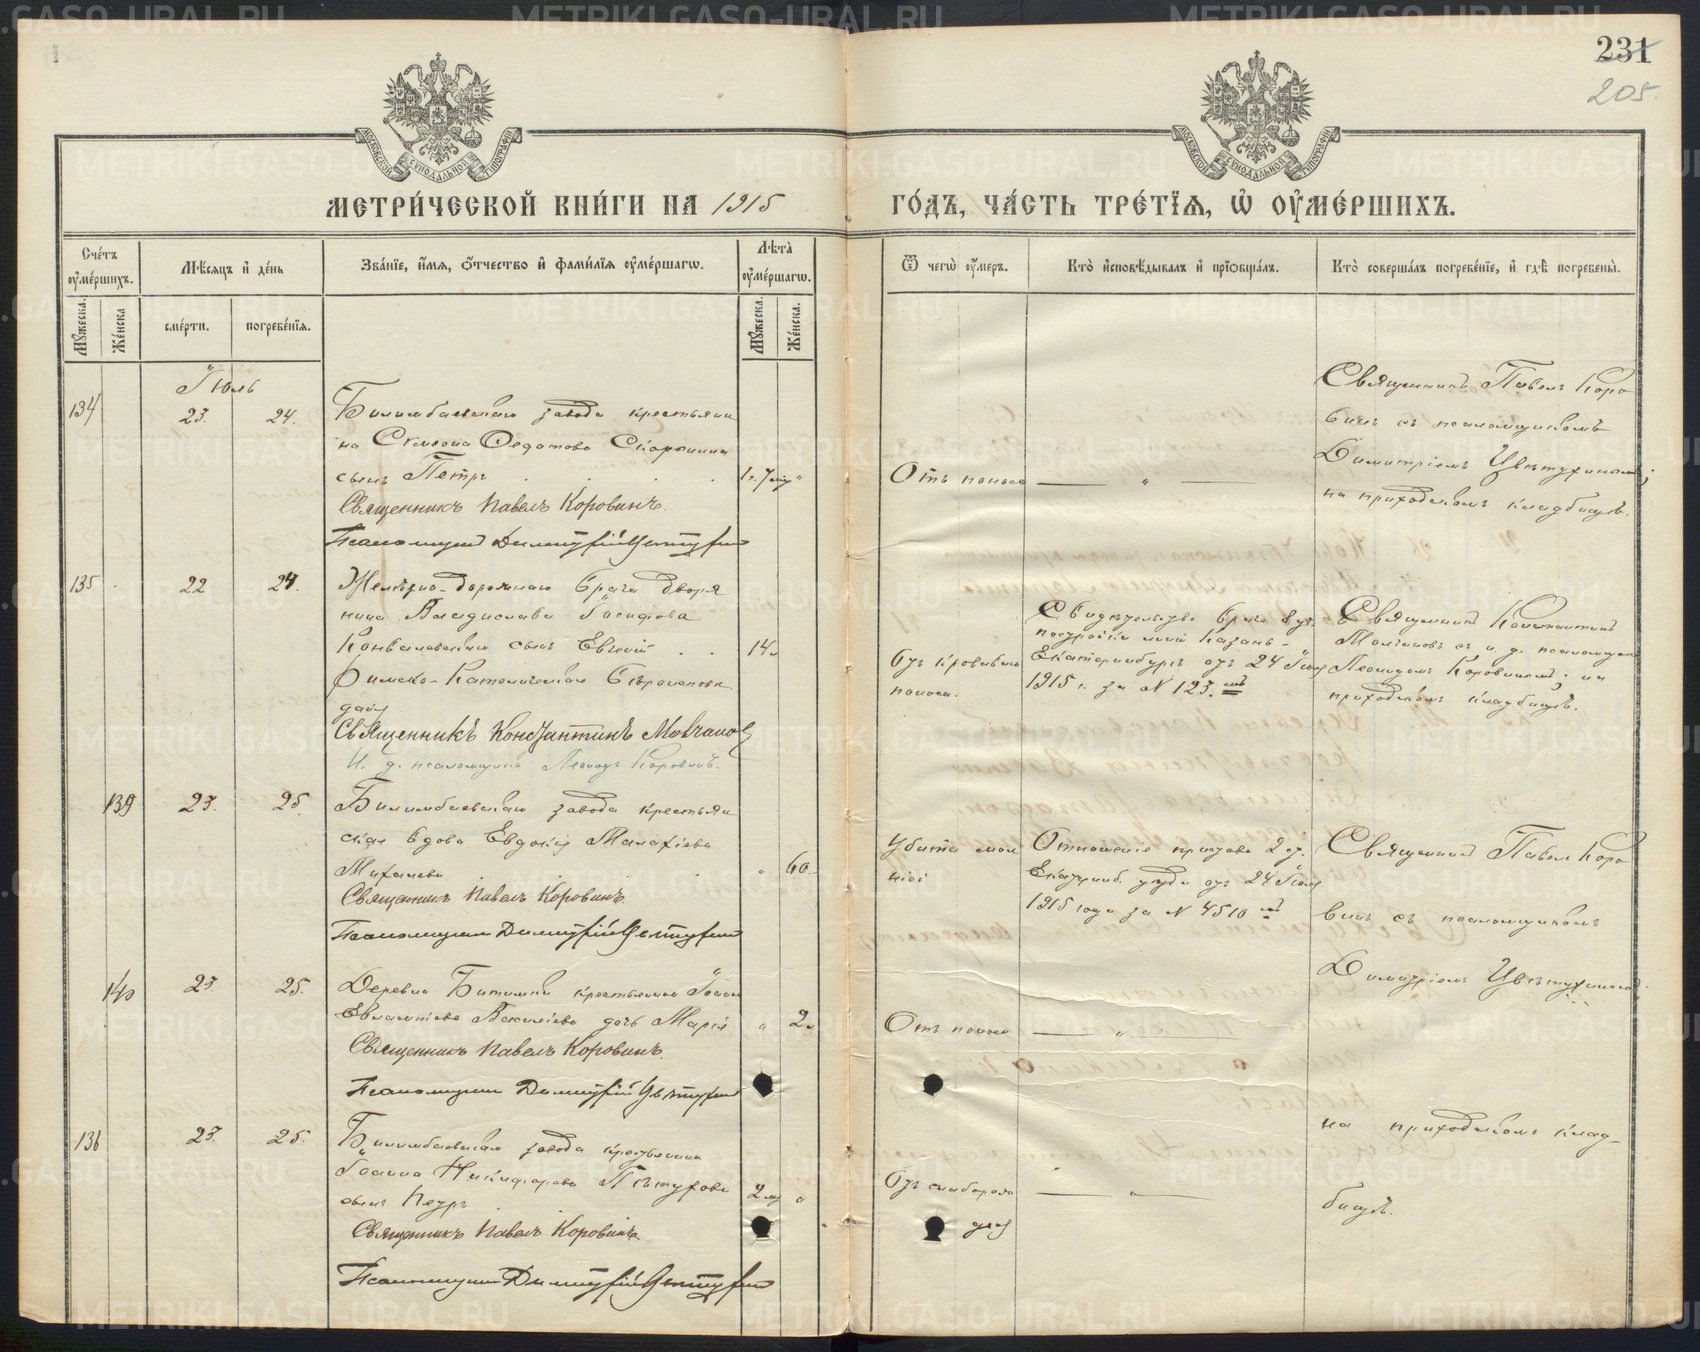 231
205.
МОСКОВСКОЙ СѴНОДАЛЬНОЙ ТИПОГРАФІИ
МОСКОВСКОЙ СѴНОДАЛЬНОЙ ТИПОГРАФІИ
МЕТРИ́ЧЕСКОЙ КНИ́ГИ НА 1915
ГО́ДЪ, ЧА́СТЬ ТРЕ́ТЇѦ, Ѡ҆ ОУ҆МЕ́РШИХЪ.
Сче́тъ оу҆ме́ршихъ.
Мꙋ́жеска.
Же́нска
Мѣ́сѧцъ и҆ де́нь
сме́рти.
погребе́нїѧ.
Зва́нїе, и҆́мѧ, ѻ҆́тчество и҆ фами́лїѧ оу҆ме́ршагѡ.
Лѣ̑та̀ оу҆ме́ршагѡ.
Мꙋ́жеска.
Же́нска.
Ѿ чегѡ̀ оу҆́меръ.
Кто̀ и҆сповѣ́дывалъ и҆ прїѡбща́лъ.
Кто̀ соверша́лъ погребе́нїе, и҆ гдѣ̀ погребены̀.
Іюль
134
23.
24.
Билимбаевскаго завода крестьяни
на Сѵмеона Ѳедотова Скорынина
сынъ Петръ
1 г. 7 мѣс "
Священникъ Павелъ Коровинъ.
Псаломщикъ Димитрій Цвѣтухинъ
Отъ поноса
"
Священникъ Павелъ Коро
винъ съ псаломщикомъ
Димитріемъ Цвѣтухинымъ;
на приходскомъ кладбищѣ.
135
22
24.
Желѣзно-дорожнаго врача дворя
нина Владислава Іосифова
сынъ Евгеній
14
Римско-Католическаго Вѣроисповѣ
данія
Священникъ Константинъ Молчановъ
И. д. псаломщика Леонидъ Коровинъ.
Отъ кроваваго
поноса.
Свидѣтельство врача 8 уч.
постройки линіи Казань-
Екатеринбургъ отъ 24 Іюля
1915 г. за № 123.
Священникъ Константинъ
Молчановъ съ и. д. псаломщика
Леонидомъ Коровинымъ: на
приходскомъ кладбищѣ.
139
23.
25.
Билимбаевскаго завода крестьян
ская вдова Евдокія Малахіева
Михалева
"
60
Священникъ Павелъ Коровинъ.
Псаломщикъ Димитрій Цвѣтухинъ
Убита мол
ніей
Отношеніе пристава 2 ст.
Екатеринб. уѣзда отъ 24 Іюля
1915 года за № 4510
Священникъ Павелъ Коро
винъ съ псаломщикомъ
140
23.
25.
Деревни Битимки крестьянина Іоанна
Евлампіева дочь Марія
"
2
Священникъ Павелъ Коровинъ.
Псаломщикъ Димитрій Цвѣтухинъ
Отъ поноса
"
Димитріемъ Цвѣтухинымъ
136
23.
25.
Билимбаевскаго завода крестьянина
Іоанна Никифорова Пѣтухова
сынъ Петръ
2 мѣс
Священникъ Павелъ Коровинъ
Псаломщикъ Димитрій Цвѣтухинъ
Отъ слаборож
денія
"
на приходскомъ клад-
бищѣ.
METRIKI.GASO-URAL.RU